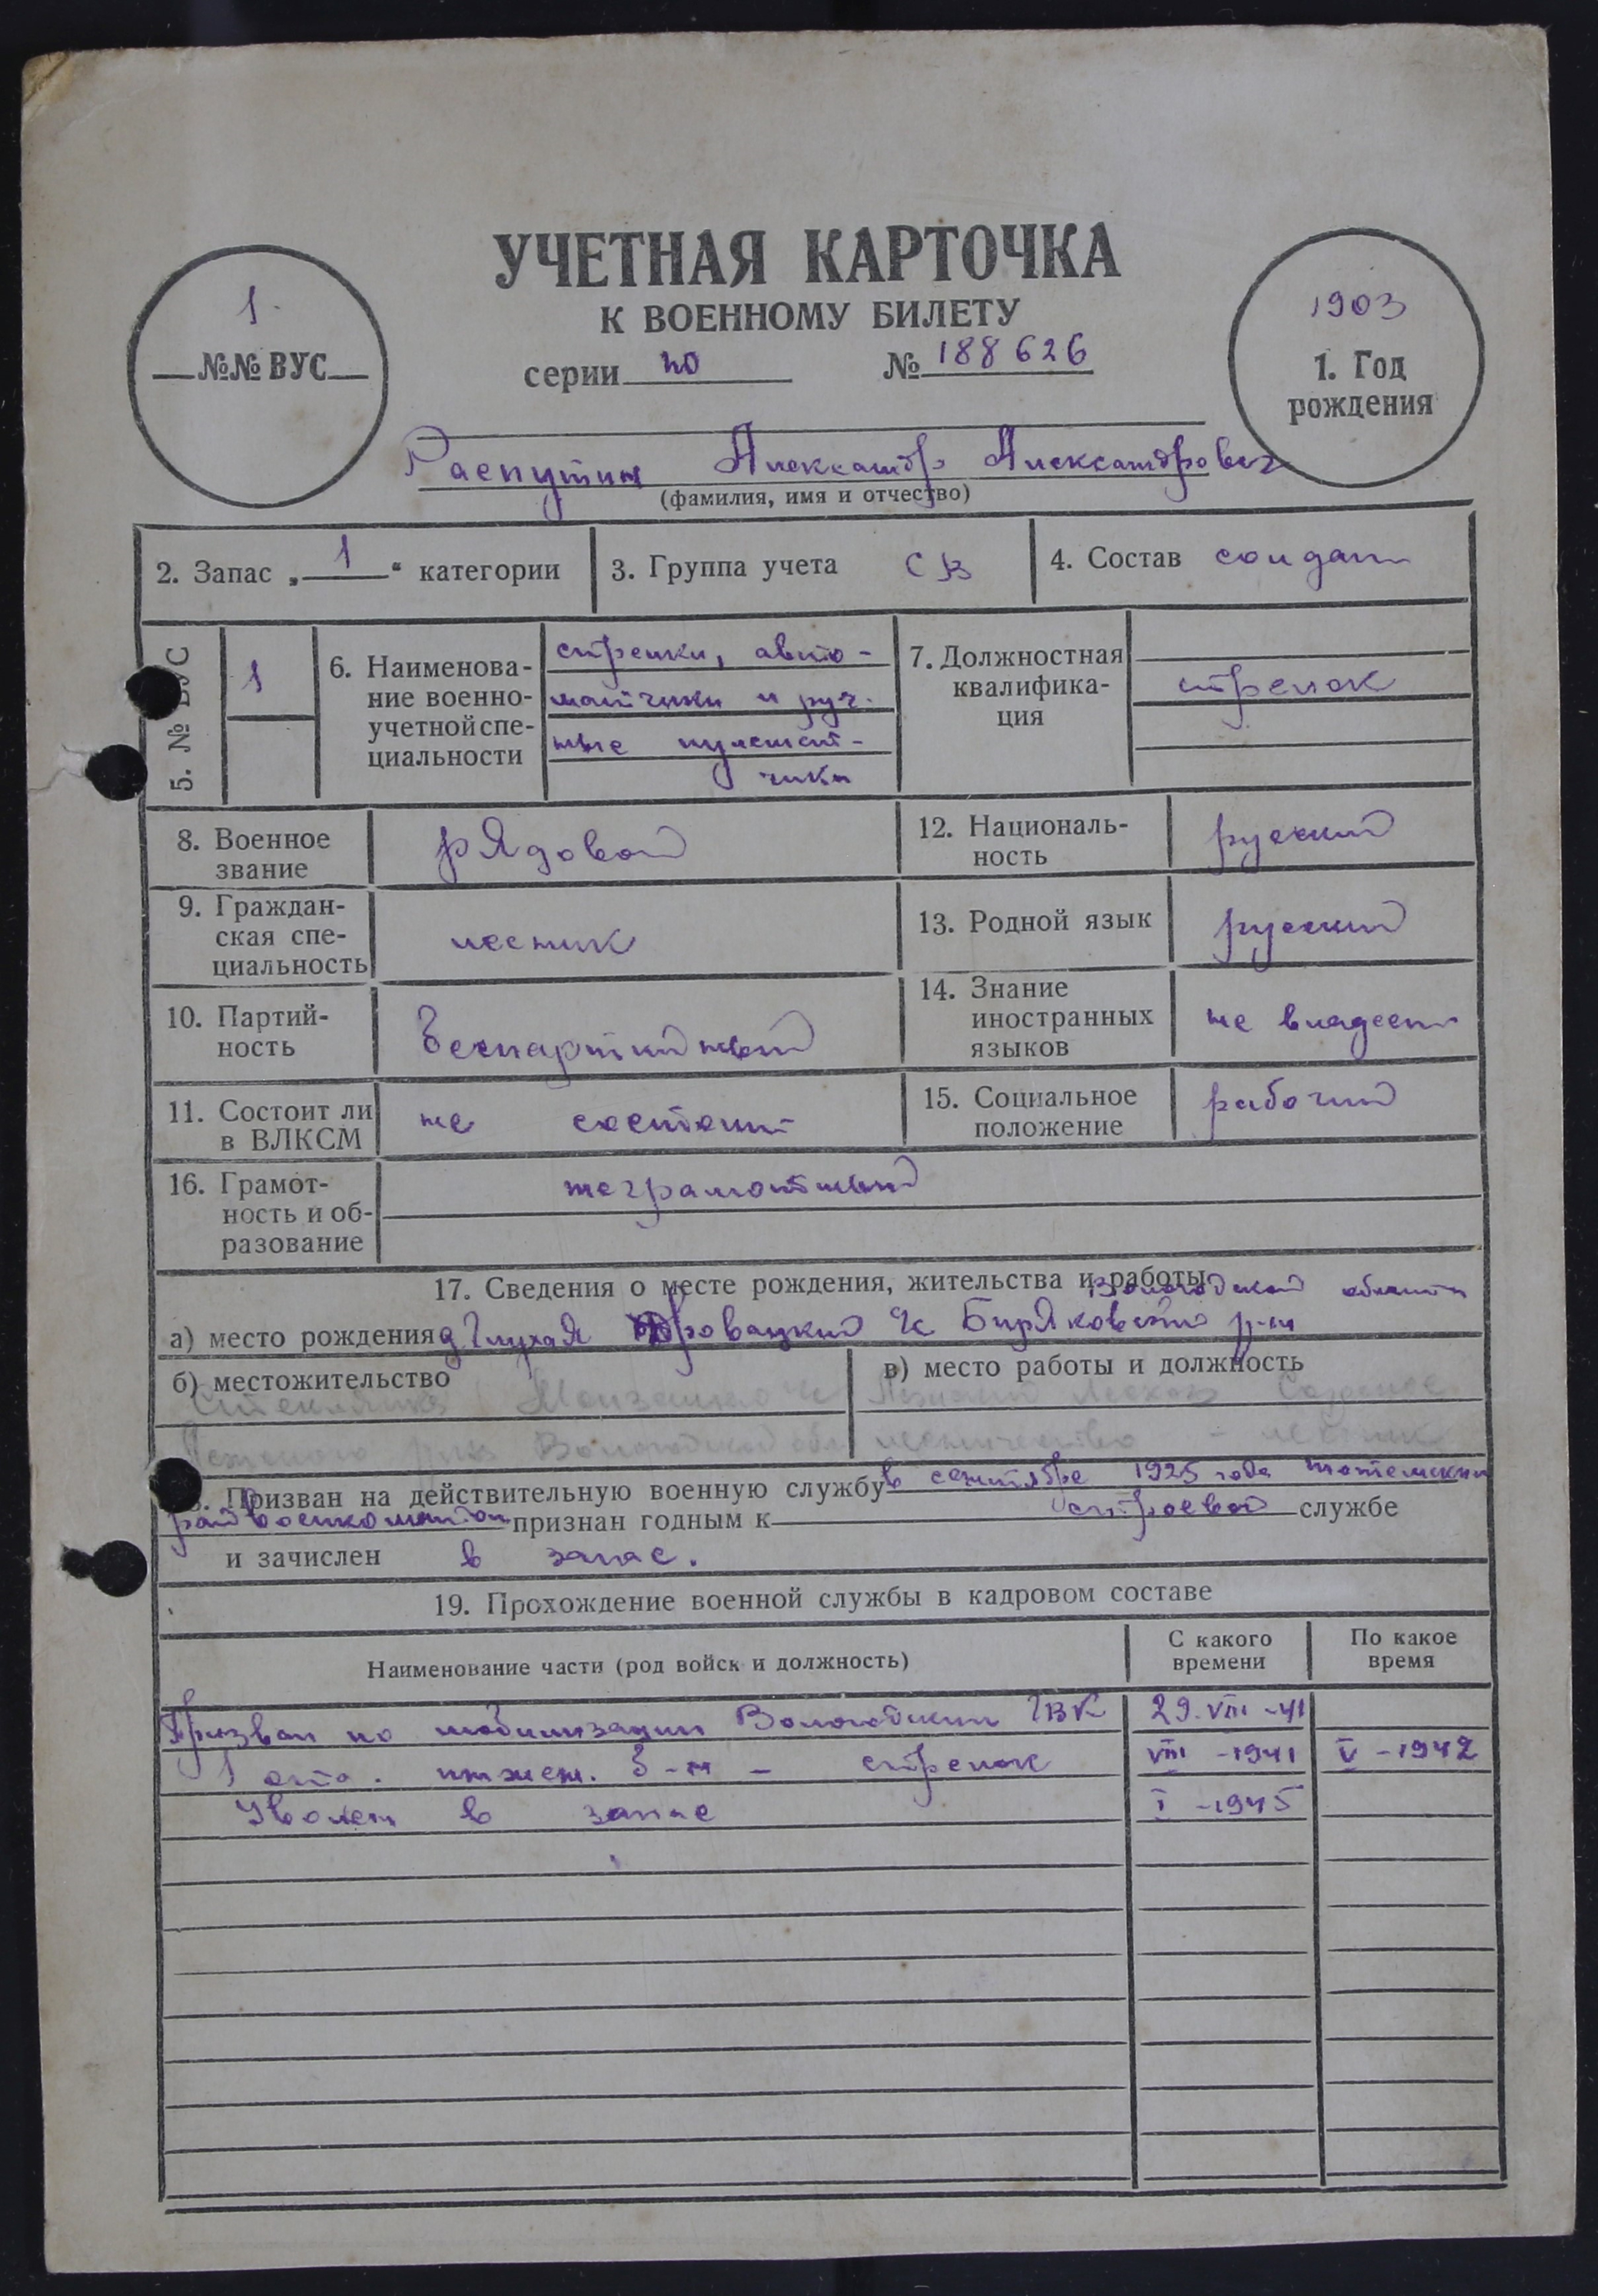 УЧЕТНАЯ КАРТОЧКА
К ВОЕННОМУ БИЛЕТУ
серии № 188626
1
№№ ВУС
1903
1. Год
рождения
Распутин Александр Александрович
(фамилия, имя и отчество)
2. Запас „1“ категории
3. Группа учета СВ
4. Состав солдат
5. № ВУС 1
6. Наименова-
ние военно-
учетной спе-
циальности
стрелки, авто-
матчики и руч-
ные пулемет-
чики
7. Должностная
квалифика-
ция
стрелок
8. Военное
звание
рядовой
12. Националь-
ность
русский
9. Граждан-
ская спе-
циальность
лесник
13. Родной язык русский
10. Партий-
ность
Беспартийный
14. Знание
иностранных
языков
не владеет
11. Состоит ли
в ВЛКСМ
не состоит
15. Социальное
положение
рабочий
16. Грамот-
ность и об-
разование
неграмотный
17. Сведения о месте рождения, жительства и работы
Вологодской области
а) место рождения д Глухая с Биряковского р-н
б) местожительство
в) место работы и должность
Вологодской обл
лесничество - лесник
18. Призван на действительную военную службу в сентябре 1925 года Тотемским
райвоенкоматом признан годным к строевой службе
и зачислен в запас.
19. Прохождение военной службы в кадровом составе
Наименование части (род войск и должность)
С какого
времени
По какое
время
Призван по мобилизации Вологодским ГВК 29.VIII-41
1 отд. инжен. б-н - стрелок VIII-1941 V-1942
Уволен в запас I-1945